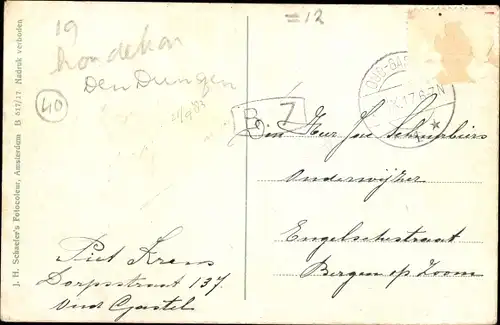 19
= 12
hondekar
Den Dungen
40
B Z
OUD-GAS
Den Heer Jac Schuurbiers
Onderwijzer
Engelschestraat
Bergen op Zoom
Piet Krans
Dorpsstraat 137
Oud Gastel
J. H. Schaefer's Fotocolour, Amsterdam B 617/17 Nadruk verboden